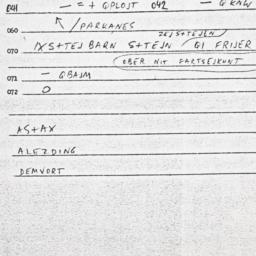 041 — = + QPLOST 042 —
/PARKANES
060 ZEJS+TEJLN/
070 /XS+TEJ BARN S+TEJN / GI FRIJER
OBER NIT FARTSEJKUNT
071 — QBAJM
072 O
AS+AX
ALEZDING
DEMVORT